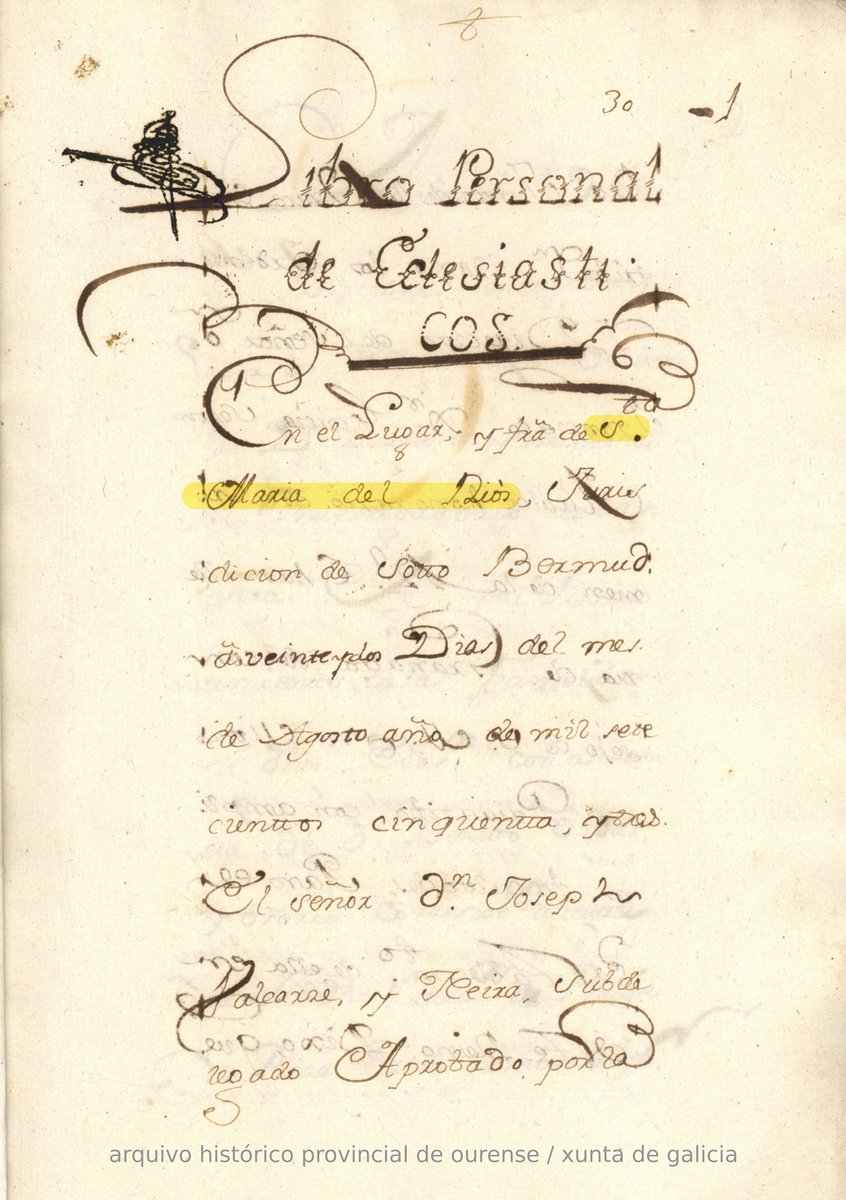 8
30 - 1
Libro Personal
de Eclesiasti
cos.
En el Lugar, y frã de S.ta
Maria del Riò, Juris
dicion de Sotto Bermud.
â veinte y dos Dias del mes
de Agosto año de mil sete
cienttos cinquentta, y tres.
El señor d.n Joseph
Valcarze, y Neira, Subde
legado Aprobado por la
arquivo histórico provincial de ourense / xunta de galicia